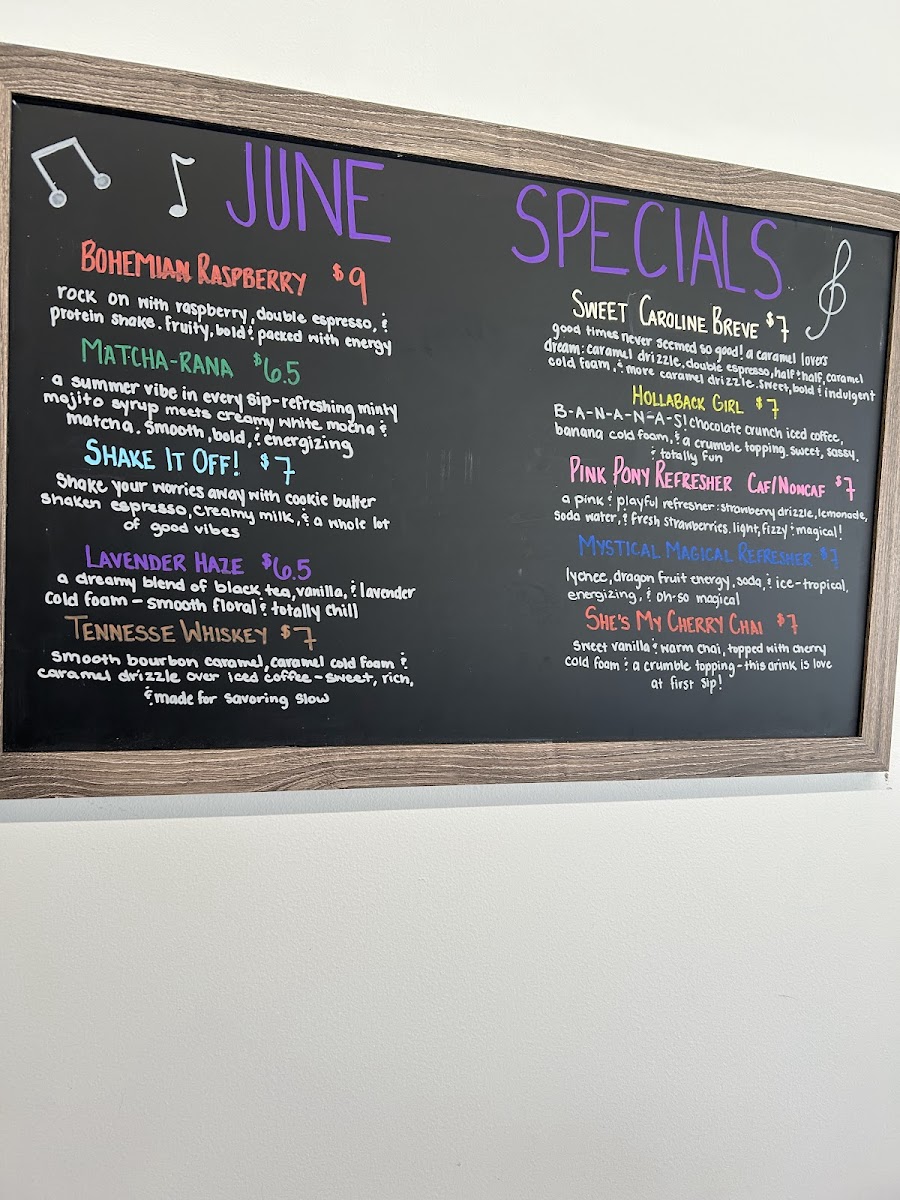 JUNE SPECIALS
BOHEMIAN RASPBERRY $9
rock on with raspberry, double espresso, &
protein shake. Fruity, bold & packed with energy
MATCHA-RANA $6.5
a summer vibe in every sip-refreshing minty
mojito syrup meets creamy white mocha &
matcha. Smooth, bold, & energizing
SHAKE IT OFF! $7
Shake your worries away with cookie butter
shaken espresso, creamy milk, & a whole lot
of good vibes
LAVENDER HAZE $6.5
a dreamy blend of black tea, vanilla, & lavender
cold foam - smooth floral & totally chill
TENNESSE WHISKEY $7
Smooth bourbon caramel, caramel cold foam &
caramel drizzle over iced coffee - sweet, rich,
& made for savoring slow
SWEET CAROLINE BREVE $7
good times never seemed so good! a caramel lovers
dream: caramel drizzle, double espresso, half & half, caramel
cold foam, & more caramel drizzle. sweet, bold & indulgent
HOLLABACK GIRL $7
B-A-N-A-N-A-S! chocolate crunch iced coffee,
banana cold foam, & a crumble topping. sweet, sassy,
& totally fun
PINK PONY REFRESHER CAF/NONCAF $7
a pink & playful refresher: strawberry drizzle, lemonade,
soda water, & fresh strawberries. light, fizzy & magical!
MYSTICAL MAGICAL REFRESHER $7
lychee, dragon fruit energy, soda, & ice-tropical,
energizing, & oh-so magical
SHE'S MY CHERRY CHAI $7
sweet vanilla & warm chai, topped with cherry
cold foam & a crumble topping - this drink is love
at first sip!